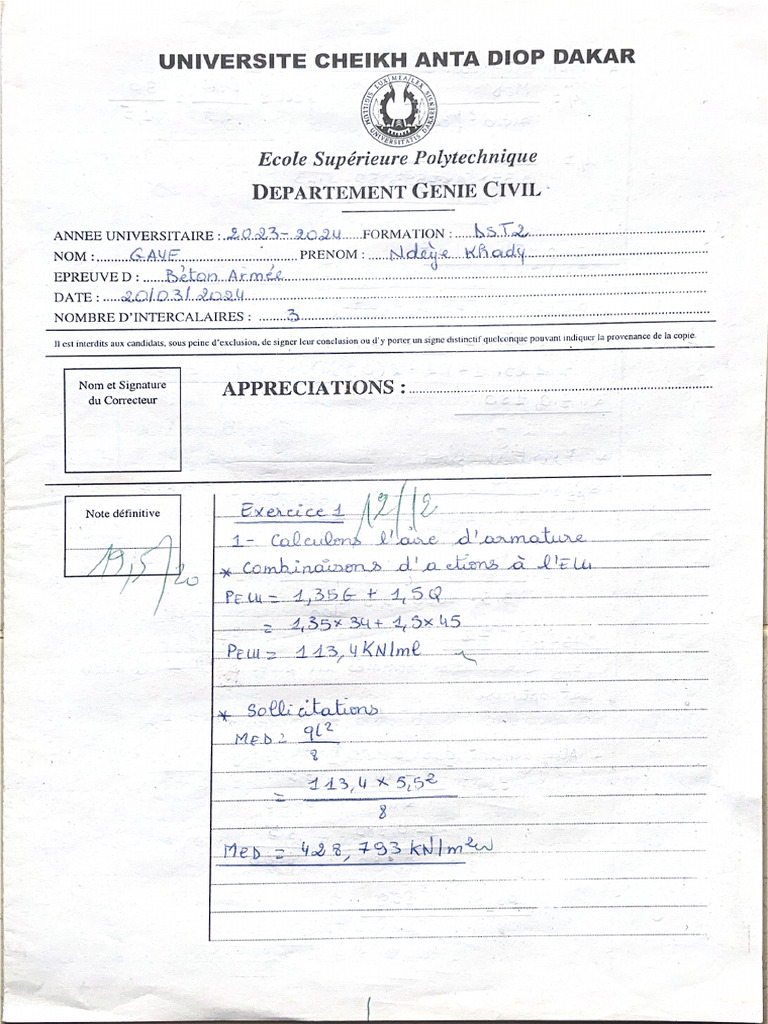 UNIVERSITE CHEIKH ANTA DIOP DAKAR
LUX MEA LEX
UNIVERSITATIS DAKAR
Ecole Supérieure Polytechnique
DEPARTEMENT GENIE CIVIL
ANNEE UNIVERSITAIRE : 2023-2024 FORMATION : DST2
NOM : GAYE PRENOM : Ndèye Khady
EPREUVE D : Béton Armée
DATE : 20/03/2024
NOMBRE D'INTERCALAIRES : 3
Il est interdits aux candidats, sous peine d'exclusion, de signer leur conclusion ou d'y porter un signe distinctif quelconque pouvant indiquer la provenance de la copie.
Nom et Signature
du Correcteur
APPRECIATIONS :
Note définitive
19,5/20
Exercice 1 12/12
1- Calculons l'aire d'armature
* Combinaisons d'actions à l'ELU
PELU = 1,35G + 1,5Q
= 1,35×34+ 1,5×45
PELU = 113,4 KN/ml
* Sollicitations
MED = ql²
8
= 113,4 × 5,5²
8
MED = 428,793 KN/m²